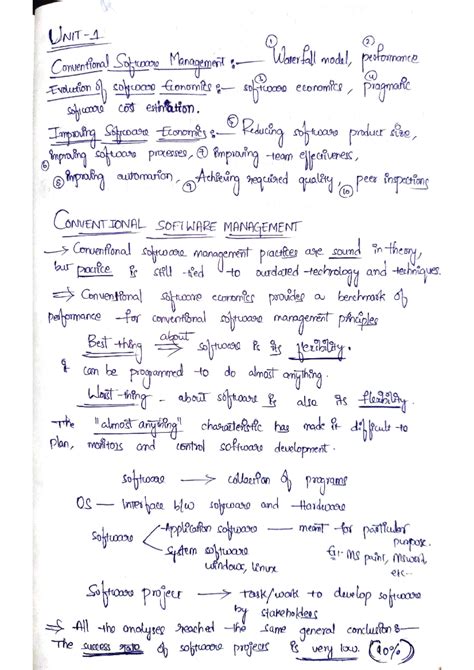 UNIT-1
Conventional Software Management :- ① Waterfall model, ② performance
Evolution of software Economics :- ③ software economics, ④ pragmatic
software cost estimation.
Improving Software Economics :- ⑤ Reducing software product size,
⑥ improving software processes, ⑦ improving team effectiveness,
⑧ Improving automation, ⑨ Achieving required quality, ⑩ peer inspections
CONVENTIONAL SOFTWARE MANAGEMENT
→ Conventional software management practices are sound in theory,
but practice is still tied to outdated technology and techniques.
⇒ Conventional software economics provides a benchmark of
performance for conventional software management principles
Best thing about ⇒ software is its flexibility.
& can be programmed to do almost anything.
Worst thing - about software is also its flexibility.
The "almost anything" characteristic has made it difficult to
plan, monitors and control software development.
software → collection of programs
OS — Interface b/w software and Hardware
software - Application software — meant for particular
purpose.
- System software Eg: MS paint, MSword,
windows, Linux etc-
Software project → task/work to develop software
by stakeholders
All the analyses reached the same general conclusion:-
The success rate of software projects is very low. (10%)